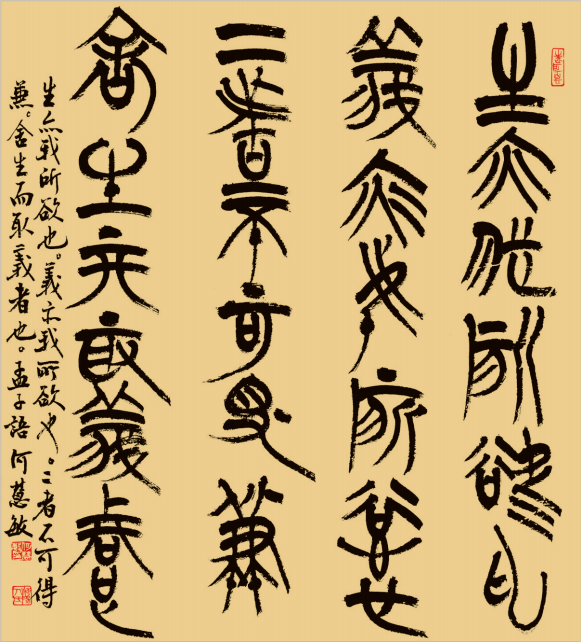 生亦我所欲也
義亦我所欲也
二者不可得兼
舍生而取義者也
生亦我所欲也。義亦我所欲也。二者不可得
兼。舍生而取義者也。孟子語何蕙敏